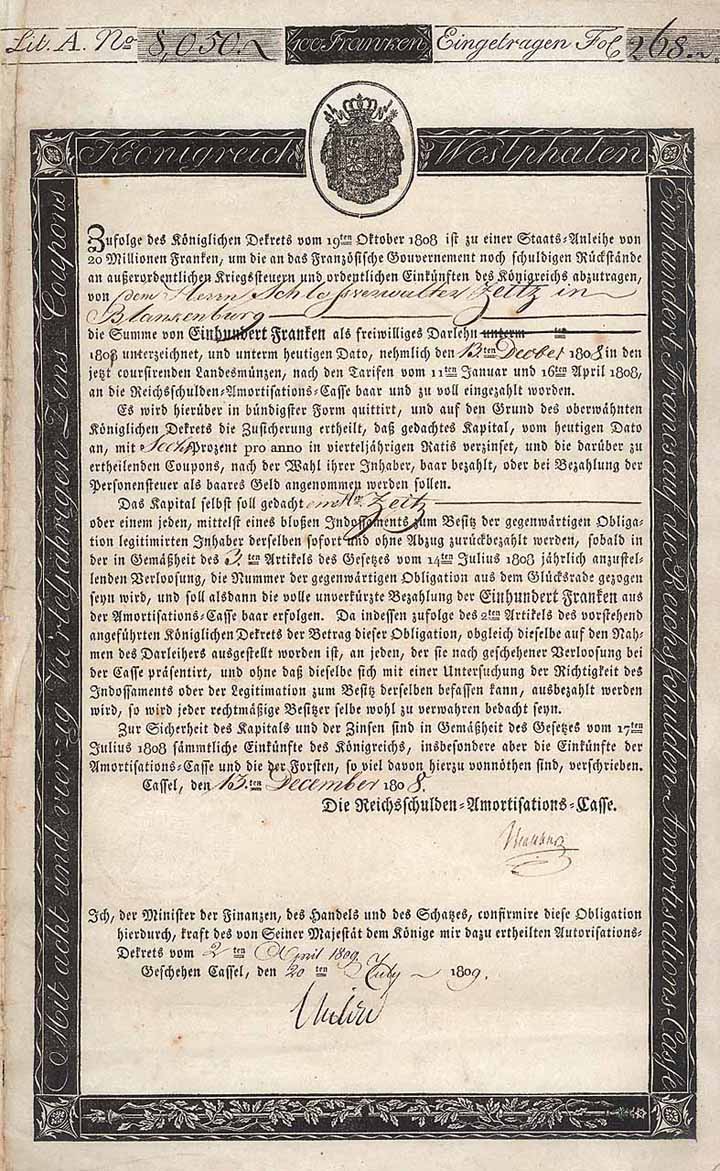 Lit. A. No 8,050.
100 Franken
Eingetragen Fol 268.
Königreich Westphalen
Mit acht und vierzig Vierteljährigen Zins-Coupons
Einhundert Francs auf die Reichsschulden-Amortisations-Casse
Zufolge des Königlichen Dekrets vom 19ten Oktober 1808 ist zu einer Staats-Anleihe von
20 Millionen Franken, um die an das Französische Gouvernement noch schuldigen Rückstände
an außerordentlichen Kriegssteuern und ordentlichen Einkünften des Königreichs abzutragen,
von dem Herrn Schlossverwalter Zeitz in
Blankenburg
die Summe von Einhundert Franken als freiwilliges Darlehn unterm ten
1808 unterzeichnet, und unterm heutigen Dato, nehmlich den 13.ten Decber 1808 in den
jetzt coursirenden Landesmünzen, nach den Tarifen vom 11ten Januar und 16ten April 1808,
an die Reichsschulden-Amortisations-Casse baar und zu voll eingezahlt worden.
Es wird hierüber in bündigster Form quittirt, und auf den Grund des oberwähnten
Königlichen Dekrets die Zusicherung ertheilt, daß gedachtes Kapital, vom heutigen Dato
an, mit Sechs Prozent pro anno in vierteljährigen Ratis verzinset, und die darüber zu
ertheilenden Coupons, nach der Wahl ihrer Inhaber, baar bezahlt, oder bei Bezahlung der
Personensteuer als baares Geld angenommen werden sollen.
Das Kapital selbst soll gedachtem Hr. Zeitz
oder einem jeden, mittelst eines bloßen Indossaments zum Besitz der gegenwärtigen Obliga-
tion legitimirten Inhaber derselben sofort und ohne Abzug zurückbezahlt werden, sobald in
der in Gemäßheit des 3.ten Artikels des Gesetzes vom 14ten Julius 1808 jährlich anzustel-
lenden Verloosung, die Nummer der gegenwärtigen Obligation aus dem Glücksrade gezogen
seyn wird, und soll alsdann die volle unverkürzte Bezahlung der Einhundert Franken aus
der Amortisations-Casse baar erfolgen. Da indessen zufolge des 2ten Artikels des vorstehend
angeführten Königlichen Dekrets der Betrag dieser Obligation, obgleich dieselbe auf den Nah-
men des Darleihers ausgestellt worden ist, an jeden, der sie nach geschehener Verloosung bei
der Casse präsentirt, und ohne daß dieselbe sich mit einer Untersuchung der Richtigkeit des
Indossaments oder der Legitimation zum Besitz derselben befassen kann, ausbezahlt werden
wird, so wird jeder rechtmäßige Besitzer selbe wohl zu verwahren bedacht seyn.
Zur Sicherheit des Kapitals und der Zinsen sind in Gemäßheit des Gesetzes vom 17ten
Julius 1808 sämmtliche Einkünfte des Königreichs, insbesondere aber die Einkünfte der
Amortisations-Casse und die der Forsten, so viel davon hierzu vonnöthen sind, verschrieben.
Cassel, den 13.ten December 1808.
Die Reichsschulden-Amortisations-Casse.
Ich, der Minister der Finanzen, des Handels und des Schatzes, confirmire diese Obligation
hierdurch, kraft des von Seiner Majestät dem Könige mir dazu ertheilten Autorisations-
Dekrets vom 2ten April 1809.
Geschehen Cassel, den 20 ten July 1809.